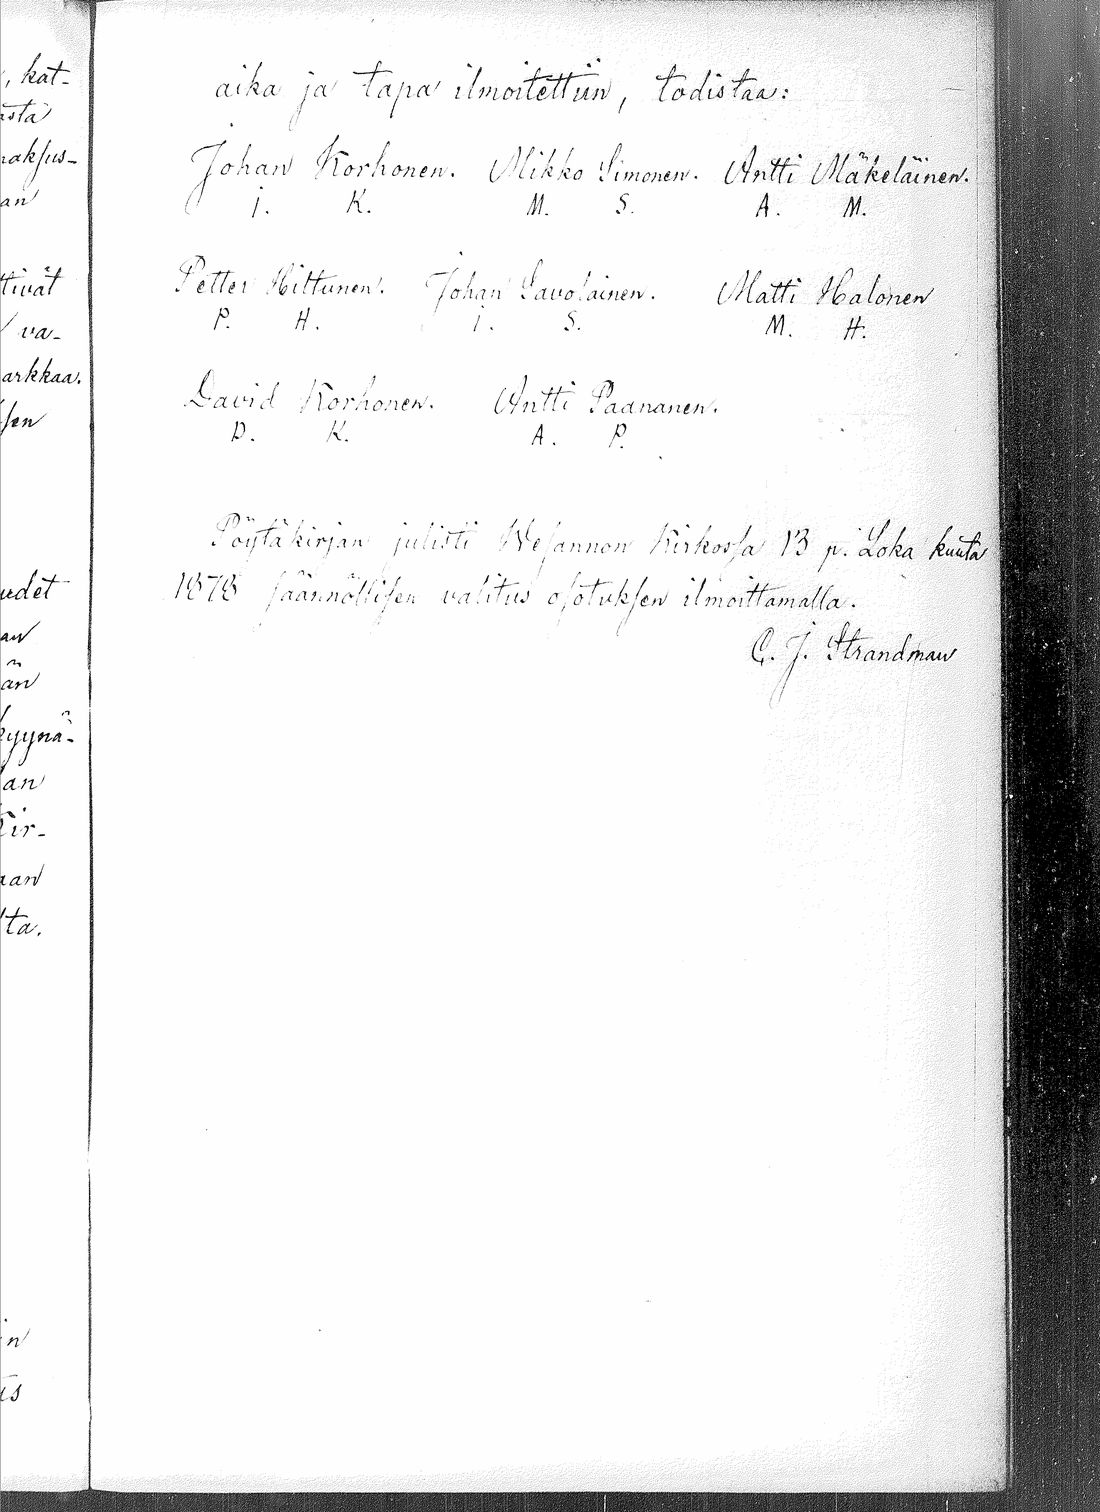 , kat-
ästä
maksus-
an
ttivät
va-
arkkaa.
sen
udet
an
än
kyynä-
an
Kir-
aan
lta.
in
us
aika ja tapa ilmoitettiin, todistaa:
Johan Korhonen. Mikko Simonen. Antti Mäkeläinen.
J. K. M. S. A. M.
Petter Hiltunen. Johan Savolainen. Matti Halonen
P. H. J. S. M. H.
David Korhonen. Antti Paananen.
D. K. A. P.
Pöytäkirjan julisti Wesannon Kirkossa 13 p. Loka kuuta
1878 säännöllisen valitus osotuksen ilmoittamalla.
C. J. Strandman